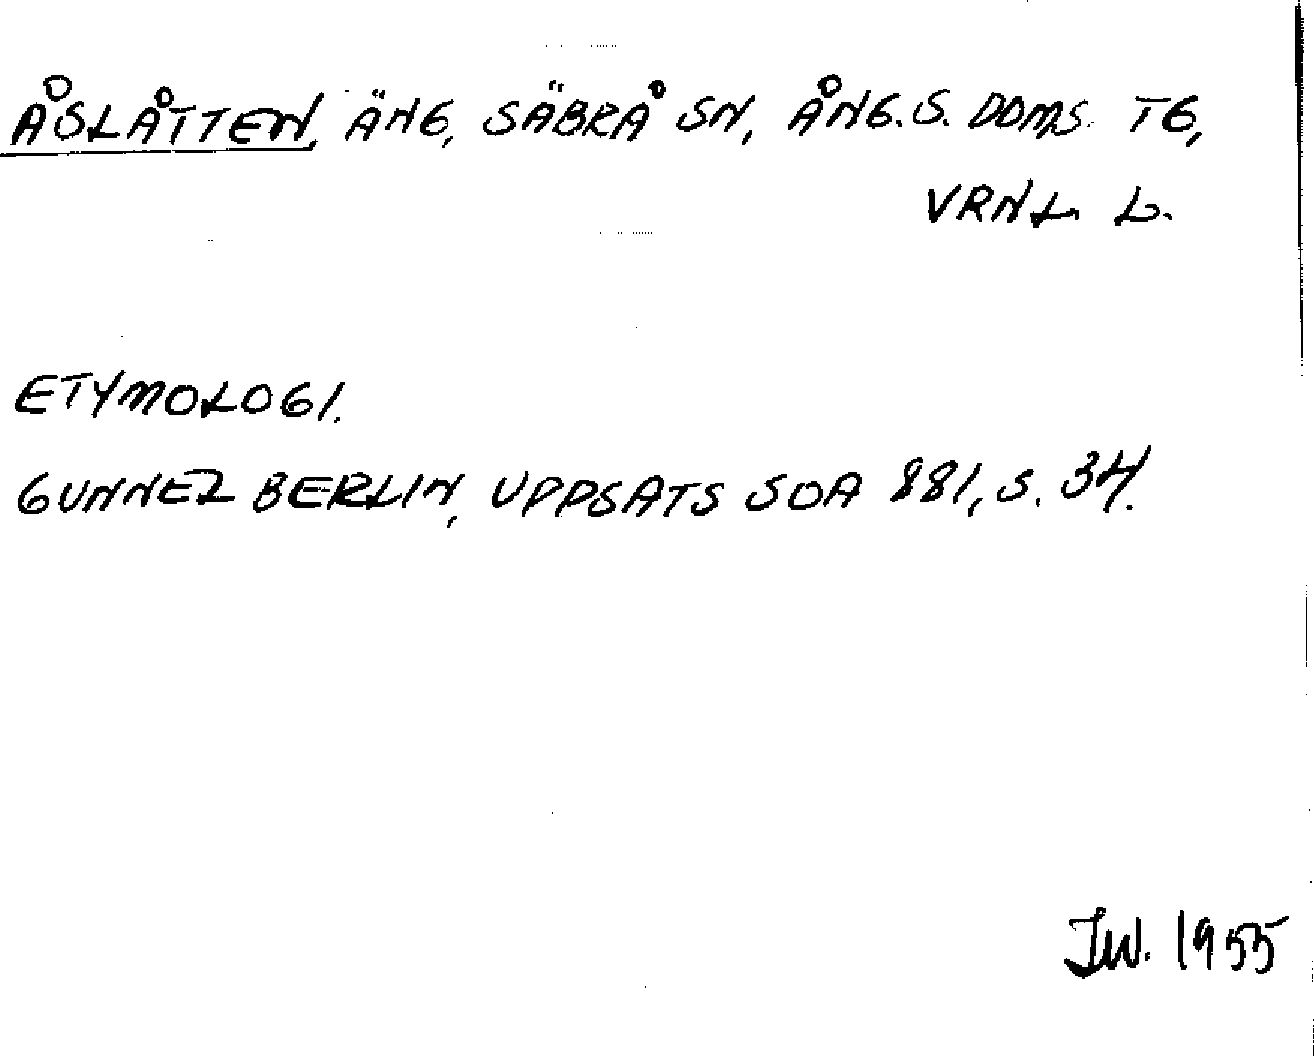 ÅSLÅTTEN, ÄNG, SÄBRÅ SN, ÅNG. S. DOMS. TG,
VRNL. L.
ETYMOLOGI.
GUNNEL BERLIN, UPPSATS SOA 881, S. 34.
JW. 1955